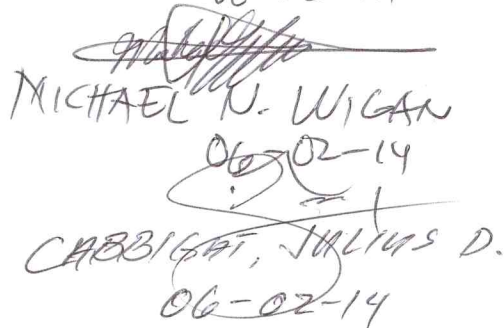 MICHAEL N. WIGAN
06-02-14
CABBIGAT, JULIUS D.
06-02-14